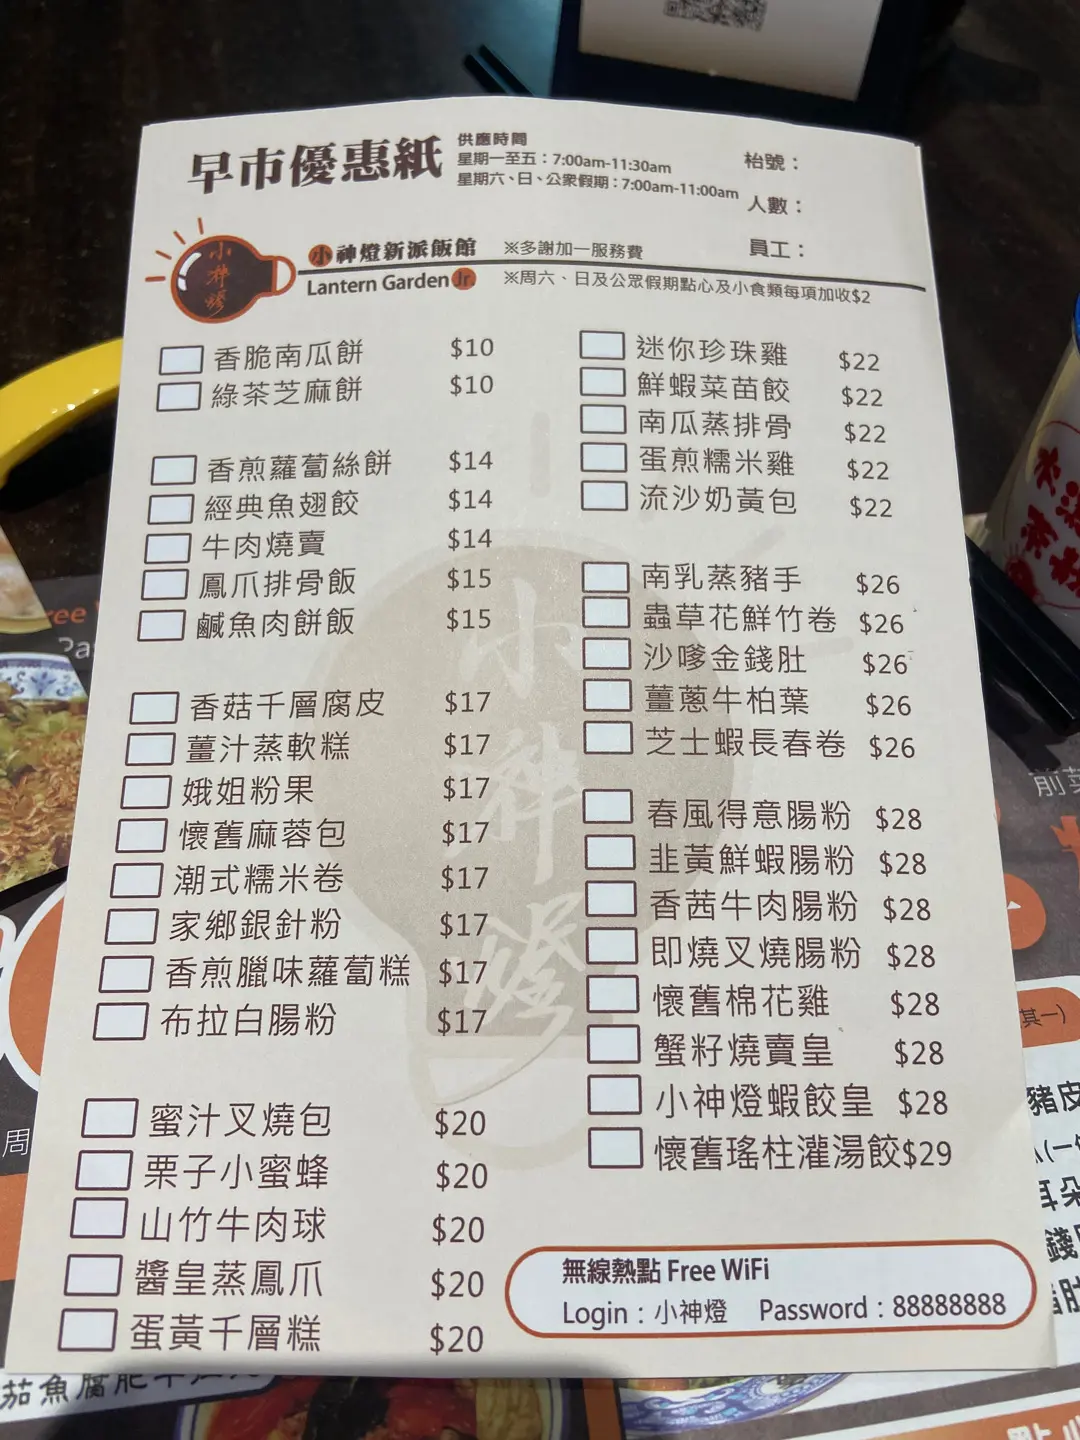 早市優惠紙
供應時間
星期一至五：7:00am-11:30am
星期六、日、公眾假期：7:00am-11:00am
枱號：
人數：
員工：
小神燈
小神燈新派飯館
Lantern Garden Jr.
※多謝加一服務費
※周六、日及公眾假期點心及小食類每項加收$2
香脆南瓜餅 $10
綠茶芝麻餅 $10
香煎蘿蔔絲餅 $14
經典魚翅餃 $14
牛肉燒賣 $14
鳳爪排骨飯 $15
鹹魚肉餅飯 $15
香菇千層腐皮 $17
薑汁蒸軟糕 $17
娥姐粉果 $17
懷舊麻蓉包 $17
潮式糯米卷 $17
家鄉銀針粉 $17
香煎臘味蘿蔔糕 $17
布拉白腸粉 $17
蜜汁叉燒包 $20
栗子小蜜蜂 $20
山竹牛肉球 $20
醬皇蒸鳳爪 $20
蛋黃千層糕 $20
迷你珍珠雞 $22
鮮蝦菜苗餃 $22
南瓜蒸排骨 $22
蛋煎糯米雞 $22
流沙奶黃包 $22
南乳蒸豬手 $26
蟲草花鮮竹卷 $26
沙嗲金錢肚 $26
薑蔥牛柏葉 $26
芝士蝦長春卷 $26
春風得意腸粉 $28
韭黃鮮蝦腸粉 $28
香茜牛肉腸粉 $28
即燒叉燒腸粉 $28
懷舊棉花雞 $28
蟹籽燒賣皇 $28
小神燈蝦餃皇 $28
懷舊瑤柱灌湯餃$29
小神燈
無線熱點 Free WiFi
Login：小神燈 Password：88888888
周
其一)
豬皮